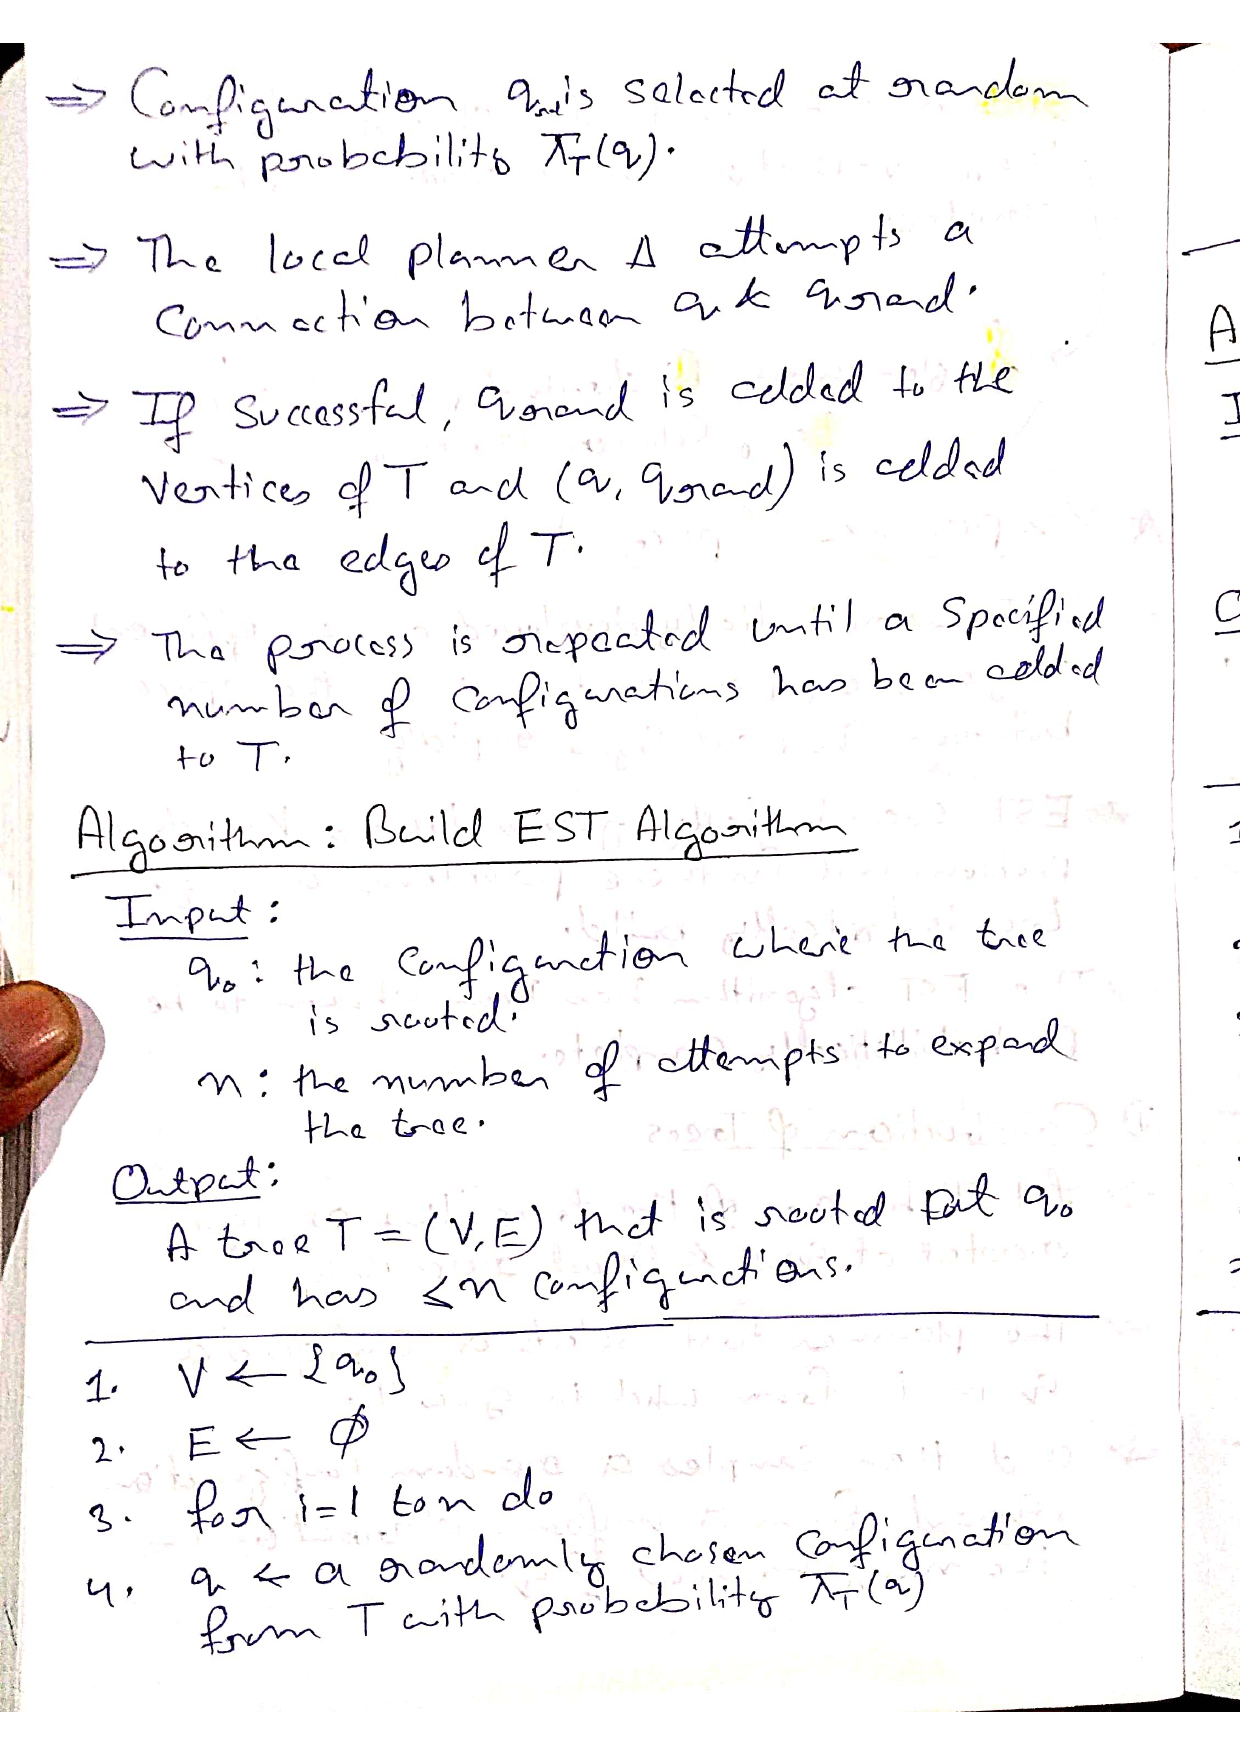 ⇒ Configuration q is selected at random
with probability πT(q).
⇒ The local planner Δ attempts a
connection between q & qrand.
⇒ If successful, qrand is added to the
vertices of T and (q, qrand) is added
to the edges of T.
⇒ The process is repeated until a specified
number of configurations has been added
to T.
Algorithm: Build EST Algorithm
Input:
q₀: the configuration where the tree
is rooted.
n: the number of attempts to expand
the tree.
Output:
A tree T = (V, E) that is rooted at q₀
and has ≤n configurations.
1. V ← {q₀}
2. E ← ϕ
3. for i=1 to n do
4. q ← a randomly chosen configuration
from T with probability πT(q)
A
I
C